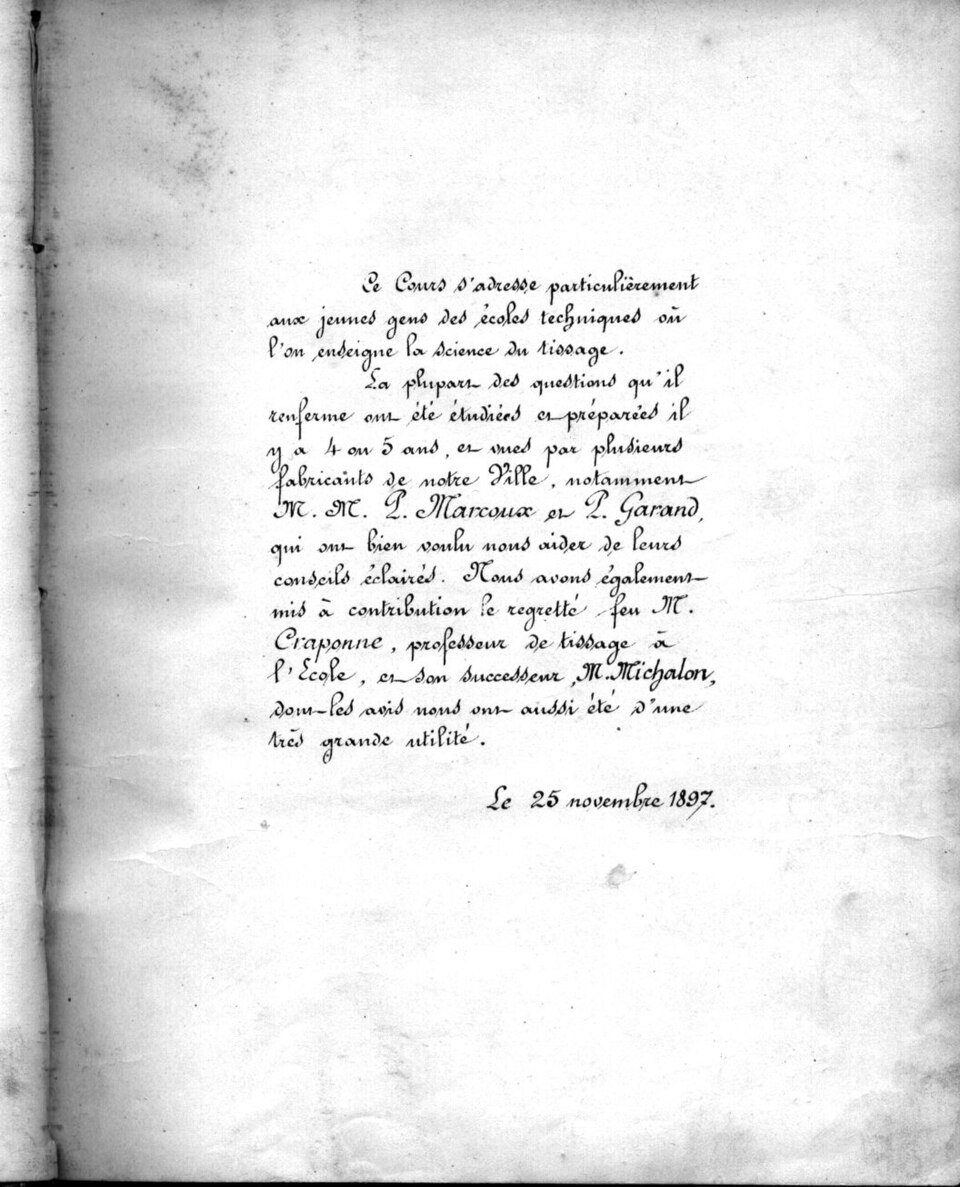 Ce Cours s'adresse particulièrement
aux jeunes gens des écoles techniques où
l'on enseigne la science du tissage.
La plupart des questions qu'il
renferme ont été étudiées et préparées il
y a 4 ou 5 ans, et vues par plusieurs
fabricants de notre Ville, notamment
M. M. P. Marcoux et P. Garand,
qui ont bien voulu nous aider de leurs
conseils éclairés. Nous avons également
mis à contribution le regretté feu M.
Craponne, professeur de tissage à
l'Ecole, et son successeur, M. Michalon,
dont les avis nous ont aussi été d'une
très grande utilité.
Le 25 novembre 1897.